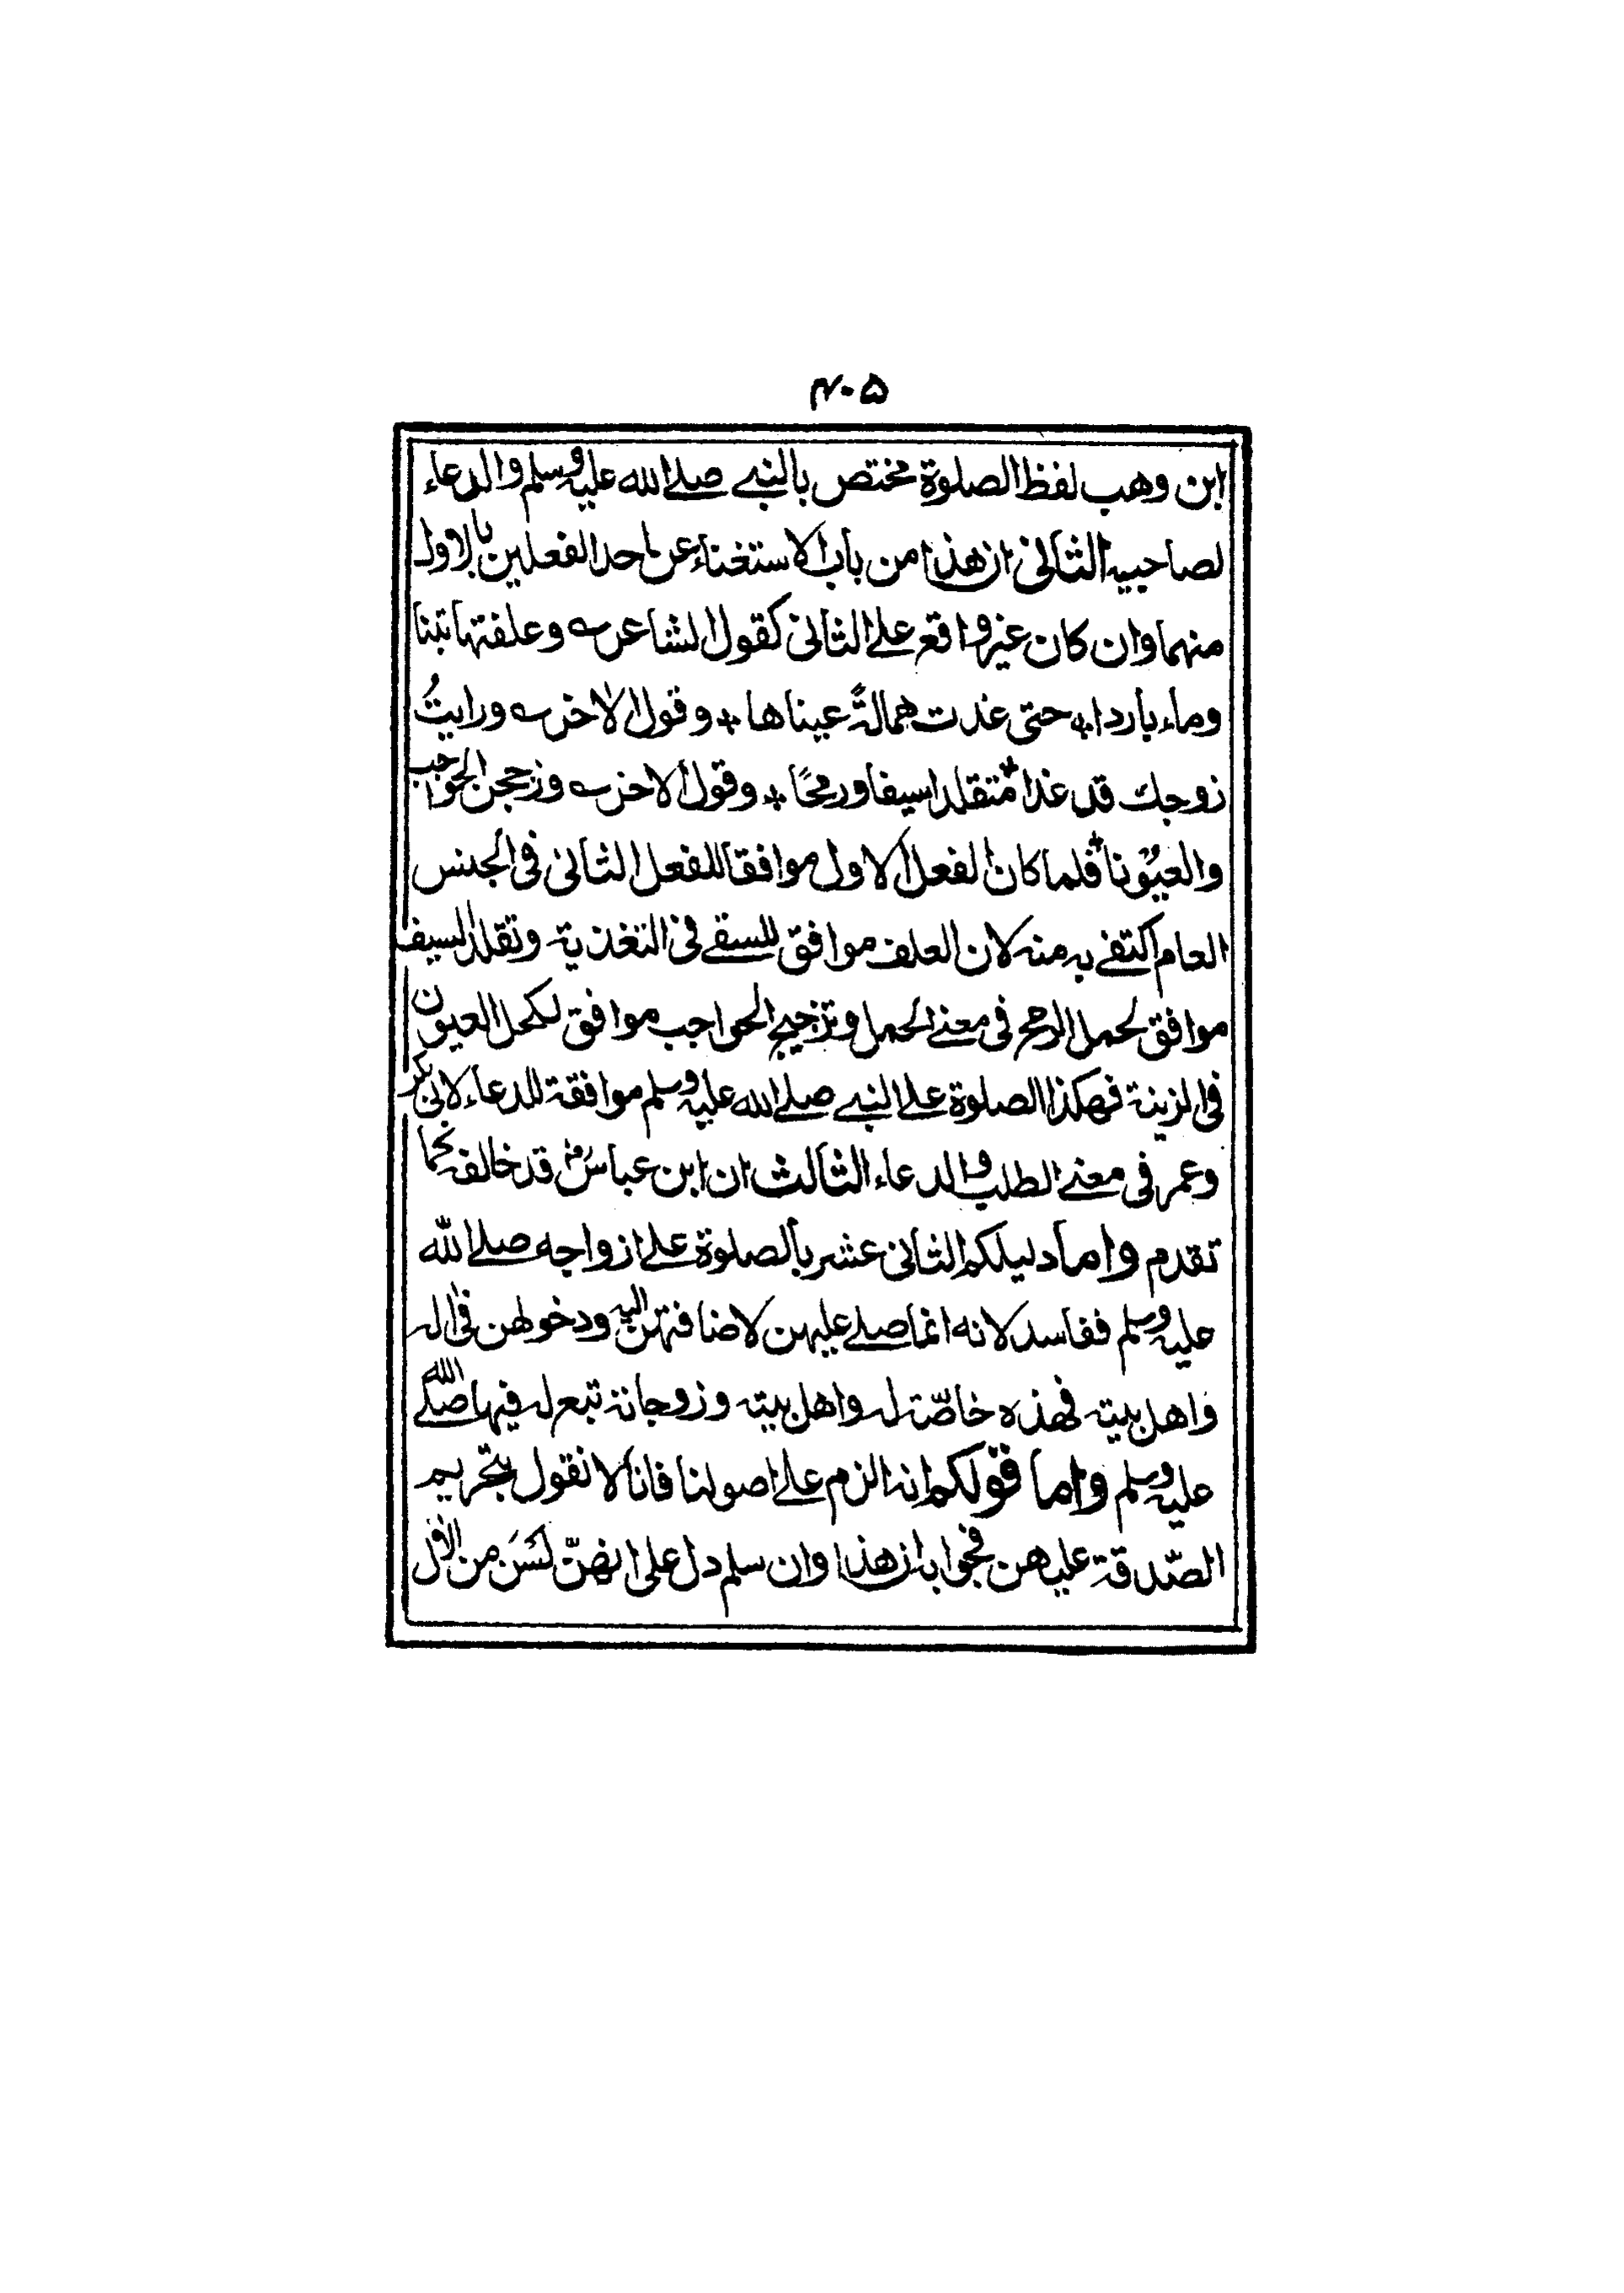 ۴۰۵
ابن وهب لفظ الصلوة مختص بالنبے صلے الله علیه وسلم والدعاء
لصاحبیه الثانی ان هذا من باب الاستغناء عن احد الفعلین بالاول
منهما وان کان غیر واقع علے الثانی کقول الشاعر؎ وعلفتها تبنا
وماء باردا٭ حتی غدت همالةً عیناها ٭ وقول الاخر؎ ورایتُ
زوجك قد غدا٭ متقلدا سیفا ورمحًا ٭ وقول الاخر؎ وزججن الحواجب
والعیُونا٭ فلما کان الفعل الاول موافقا للفعل الثانی فی الجنس
العام اکتفے به منه لان العلف موافق للسقے فی التغذیة وتقلد السیف
موافق لحمل الرمح فی معنے الحمل وتزجیج الحواجب موافق لکحل العیون
فی الزینة فهکذا الصلوة علے النبے صلے الله علیه وسلم موافقة للدعاء لابی بکر
وعمر فی معنے الطلب والدعاء الثالث ان ابن عباسؓ قد خالفه کما
تقدم واما دلیلکم الثانی عشر بالصلوة علے ازواجه صلے الله
علیه وسلم ففاسد لانه انما صلے علیهن لاضافتهن الیه ودخولهن فی اٰله
واهل بیته فهذه خاصّة له واهل بیته وزوجاته تبع له فیها صلّے الله
علیه وسلم واما قولکم انه الزم علے اصولنا فانا لا نقول بتحریم
الصّدقة علیهن فجوابه ان هذا وان سلم دل علی انهنّ لَسْنَ من الاٰل